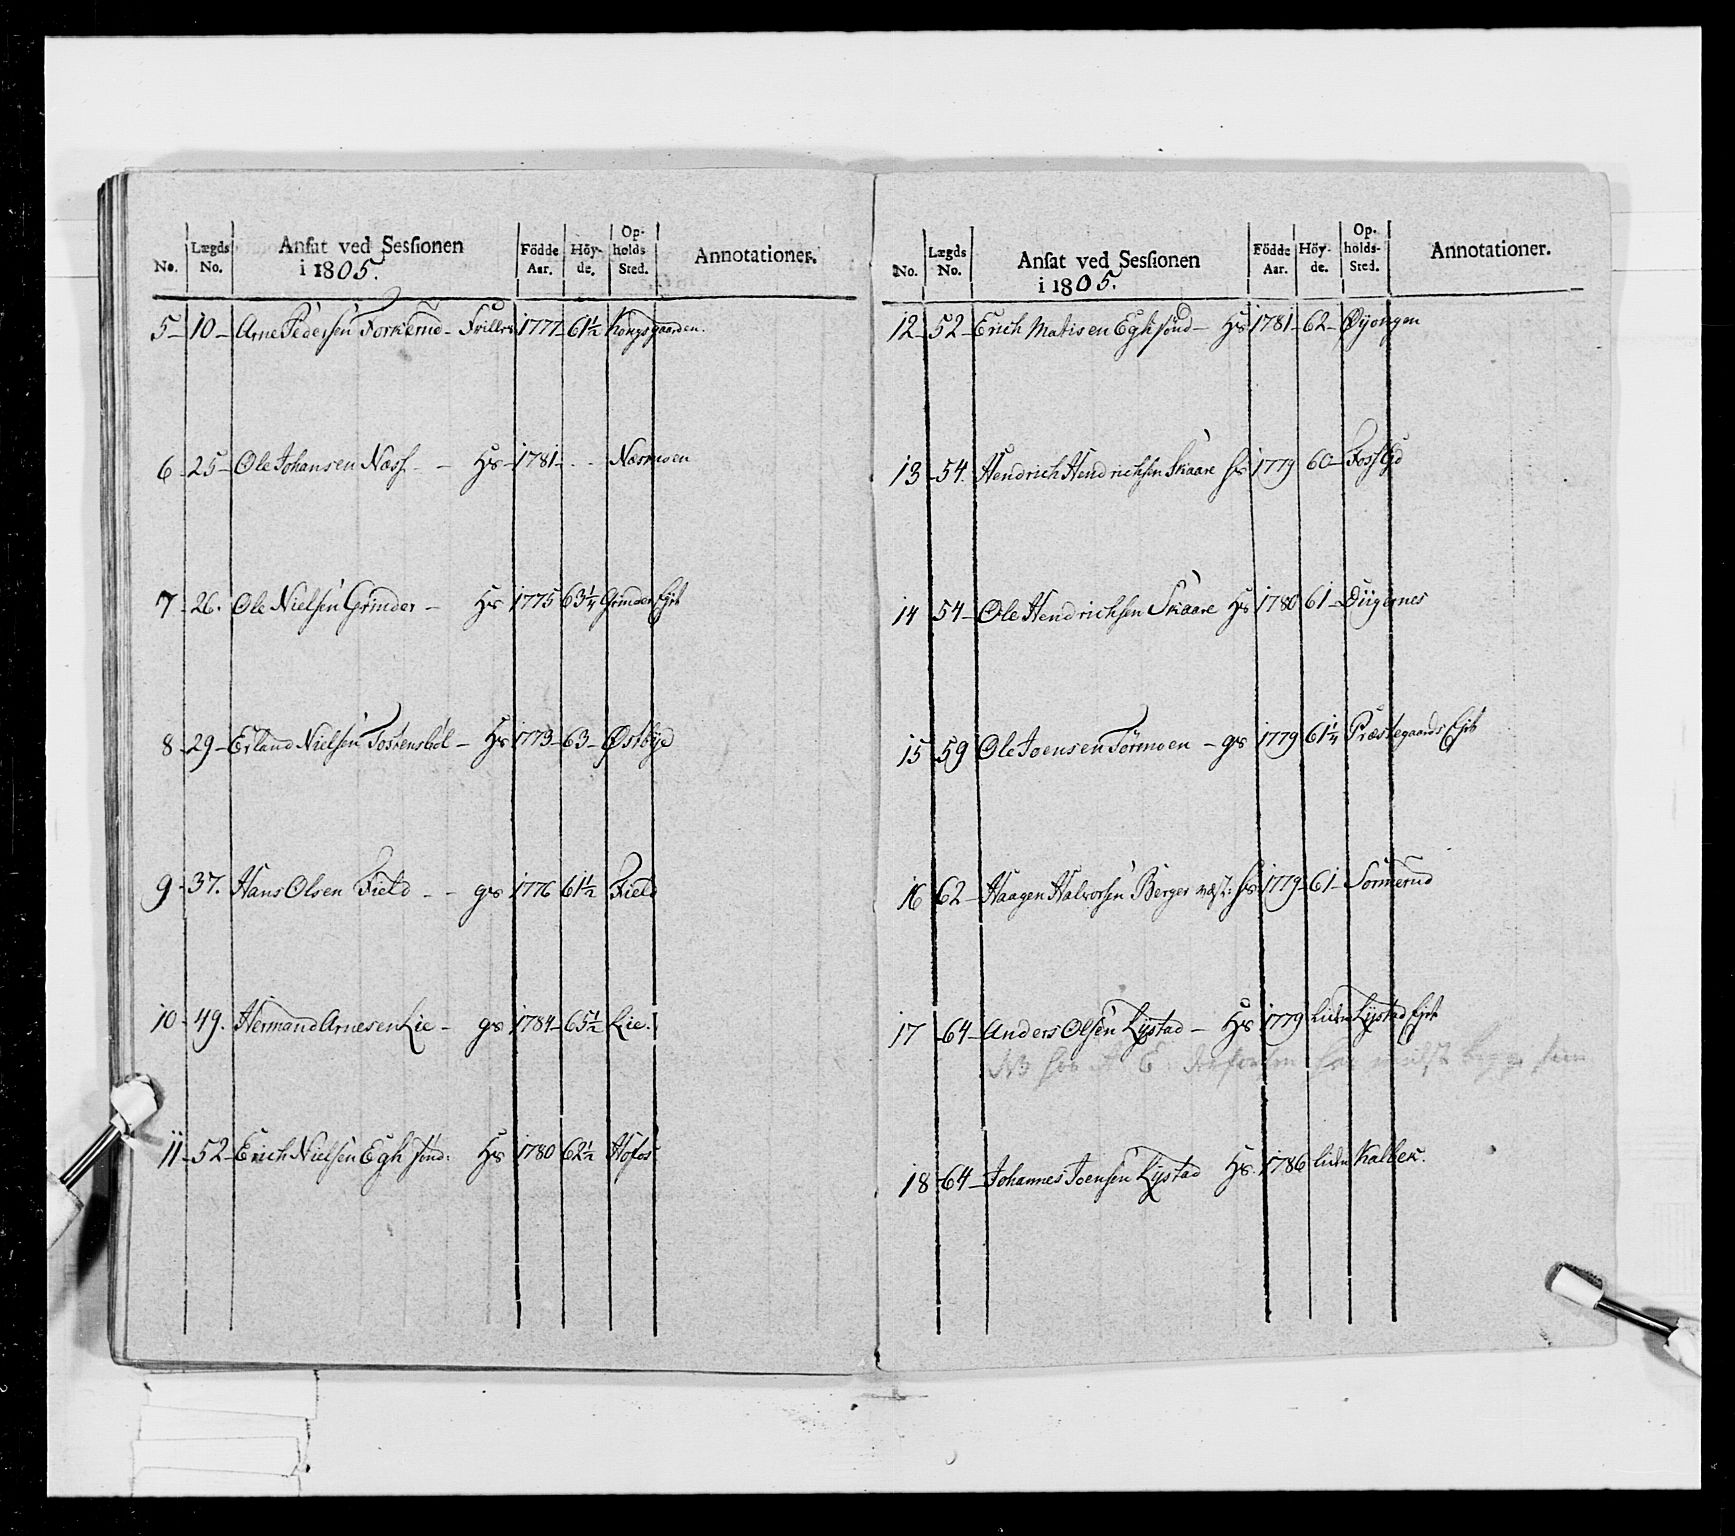 No. Lægds No. Ansat ved Sessionen i 1805. Födde Aar. Höy-de. Op-holds Sted. Annotationer.
5 - 10 - Arne Pedersen Torkerud - 1777 61½ Kongsgaarden.
6 - 25 - Ole Johansen Næss - - Hs - 1781 - - - Næsmoen
7 - 26. Ole Nielsen Grinder - Hs 1775 63¼ Grinder Ejet
8 - 29 - Erland Nielsen Tostensböl - Hs 1773 - 63 - Østbye
9 - 37. Hans Olsen Field - - gs 1776 61½ Field
10 - 49. Hermand Arnesen Lie - gs 1784 - 65½ Lie.
11 - 52 - Erich Nielsen Egh sönd: Hs 1780 62½ Hofos
No. Lægds No. Ansat ved Sessionen i 1805. Födde Aar. Höy-de. Op-holds-Sted. Annotationer.
12 - 52 - Erich Matisen Egh sönd - Hs 1781 - 62 - Øyongen
13 - 54. Hendrich Hendrichsen Skaare Hs 1779 60 -
14 54 - Ole Hendrichsen Skaare Hs 1780 61 - Diigernes
15 59 Ole Joensen Törmoen - gs 1779 61¼ Præstegaards Ejet
16 62 - Haagen Halvorsen Berger væst: Hs 1779 - 61 - Sormerud
17 - 64 - Anders Olsen Lystad - Hs 1779 liden Lystad Ejet
18 - 64 - Johannes Joensen Lystad Hs. 1786 liden Kalbek.